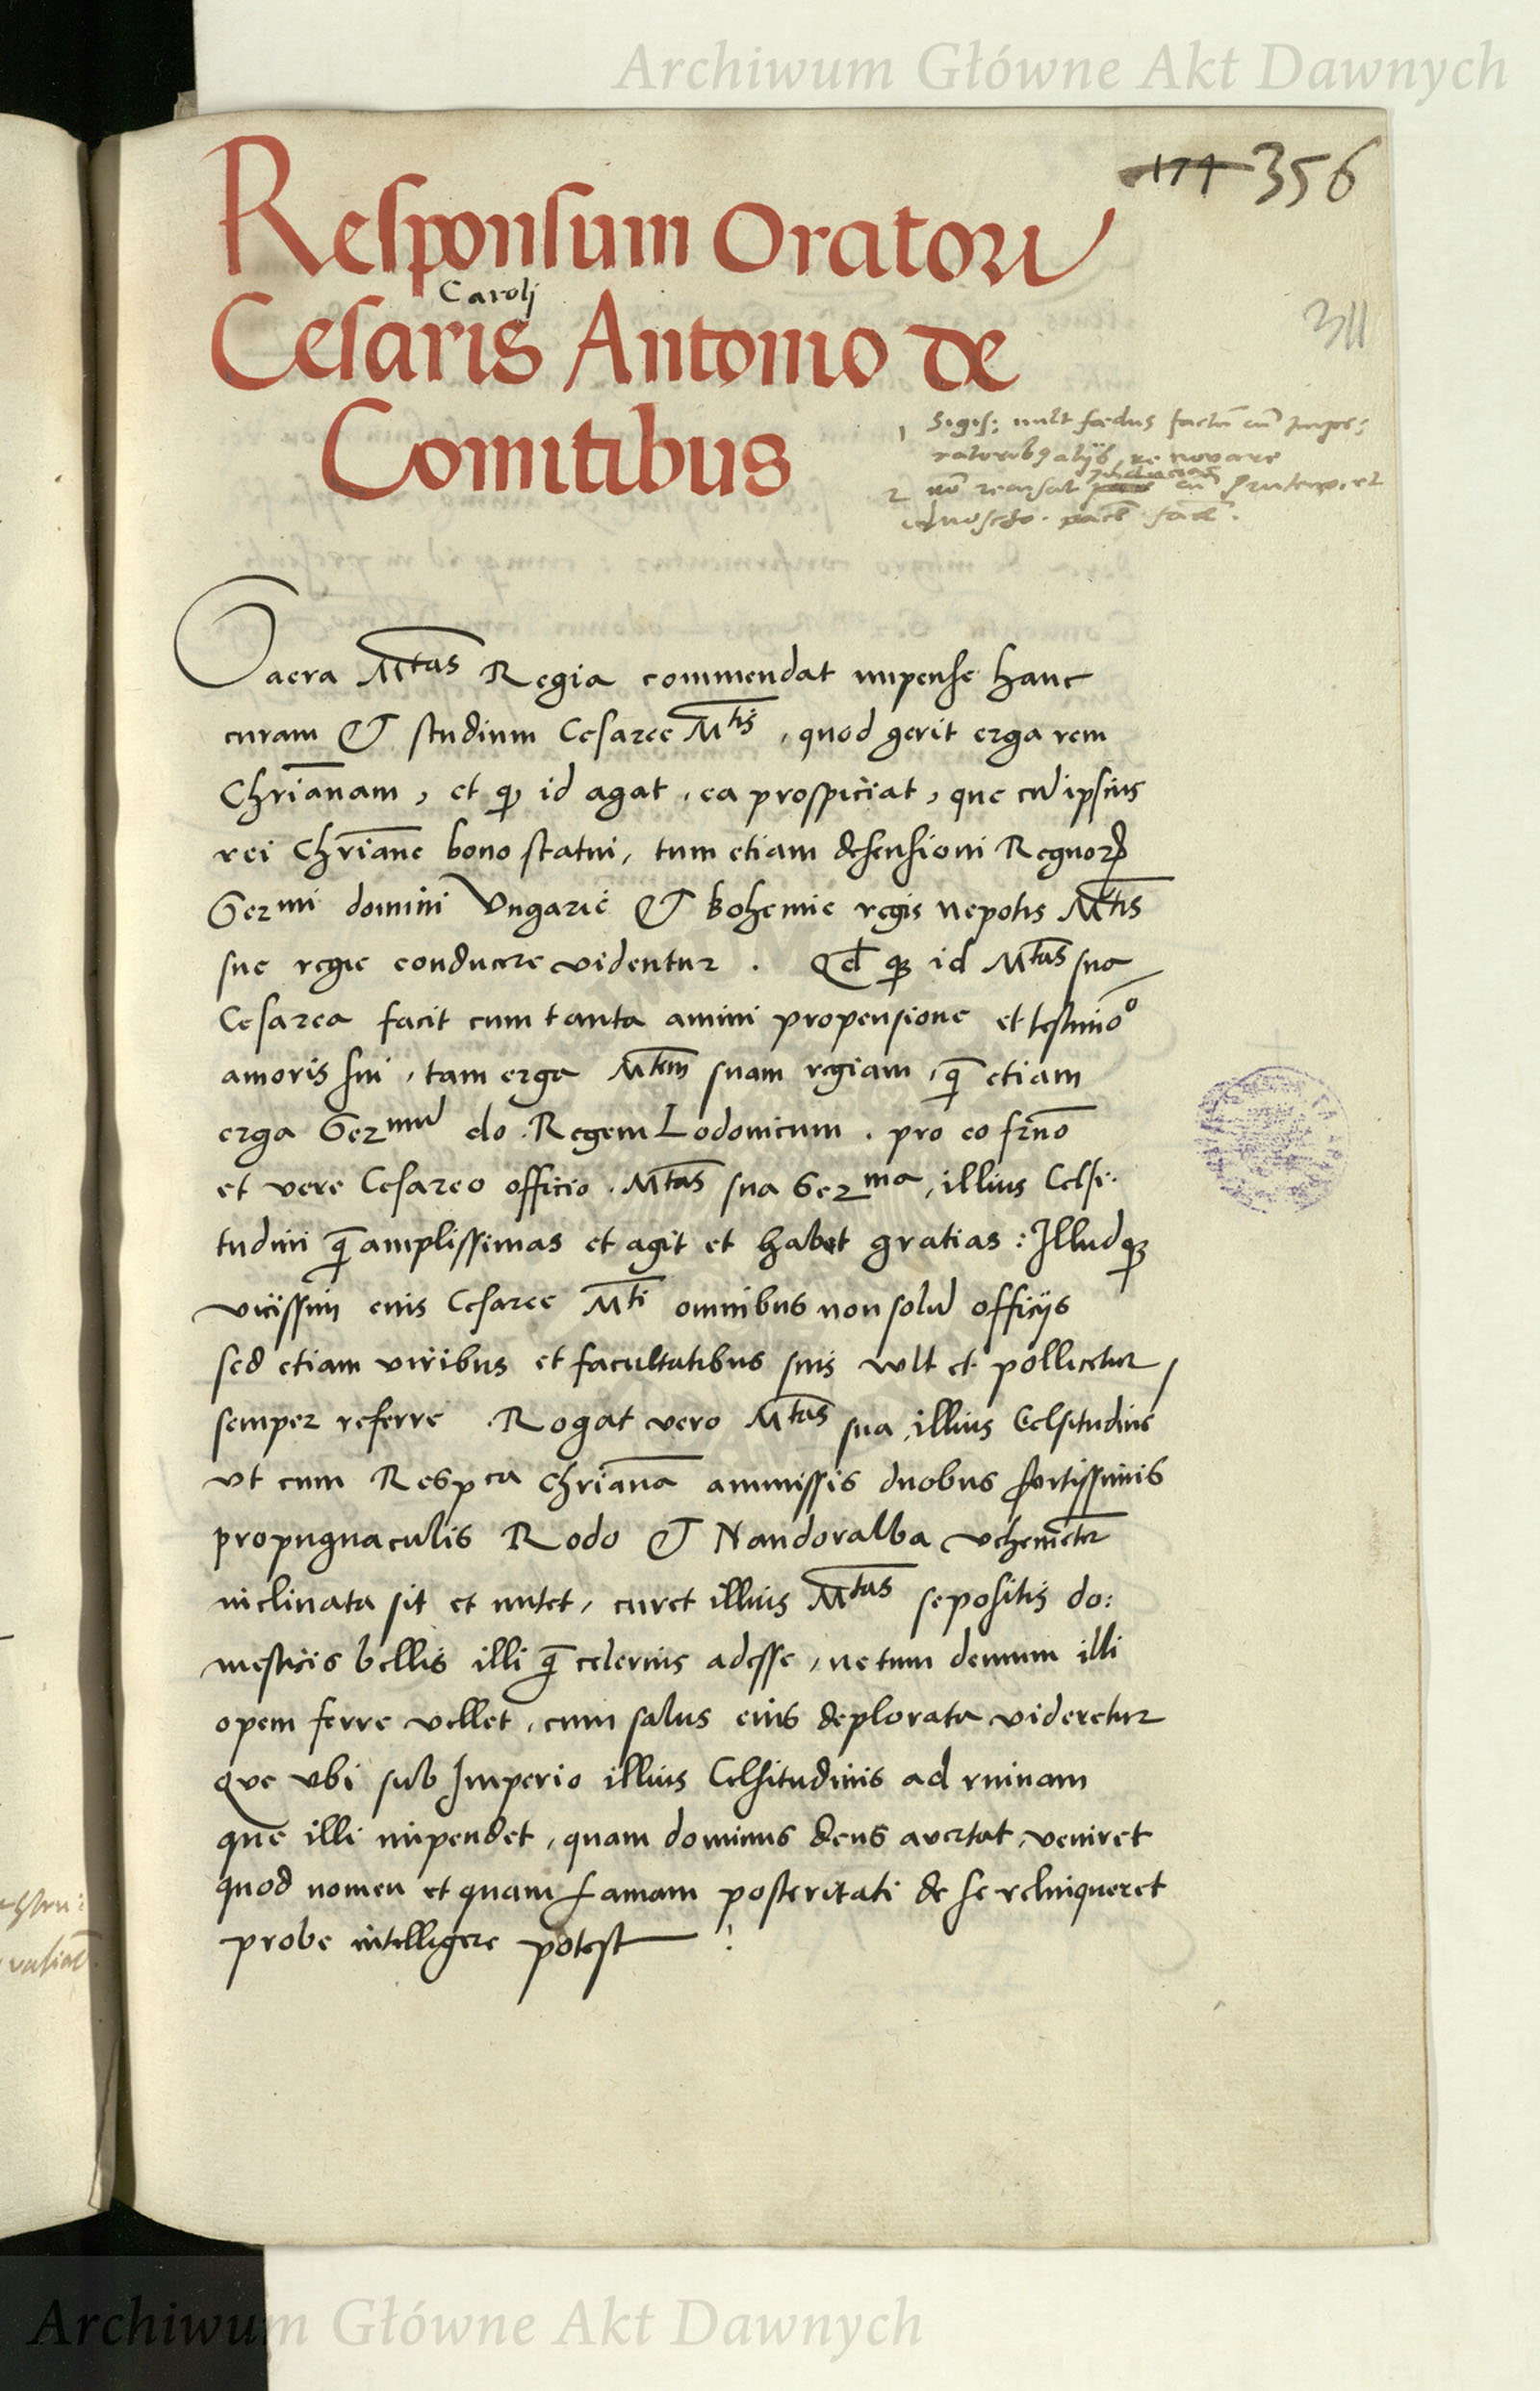 Archiwum Główne Akt Dawnych
174 356
Responsum Oratori
Caroli
Cesaris Antonio de
Comitibus
311
1 Sigis: vult fœdus factũ cũ Impe:
ratorib9 alijs renovare
2 nõ recusat cũ Prutenor. et
Moscho. pacẽ facẽ.
Sacra Mtas Regia commendat impense hanc
curam et studium Cesaree Mtis, quod gerit erga rem
Chrianam, et q id agat, ea prospiciat, que cũ ipsius
rei Chriane bono statui, tum etiam defensioni Regnorꝝ
Sermi domini Vngarie et bohemie regis nepotis Mtis
sue regie conducere videntur. Qd q id Mtas sua
Cesarea facit cum tanta animi propensione et testimo°
amoris sui, tam erga Mtem suam regiam, q̃ etiam
erga Sermũ do. Regem Lodouicum. pro eo frno
et vere Cesareo officio. Mtas sua Serma, illius Celsi-
tudini q̃ amplissimas et agit et habet gratias: Illudq
vicissim eius Cesaree Mti omnibus non solũ officijs
sed etiam viribus et facultatibus suis vult et pollicetur,
semper referre. Rogat vero Mtas sua, illius Celsitudine
vt cum Respca chriana ammissis duobus fortissimis
propugnaculis Rodo et Nandoralba vehemeter
inclinata sit et nutet, curet illius Mtas sepositis do:
mesticis bellis illi q̃ celerius adesse, ne tum demum illi
opem ferre vellet, cum salus eius deplorata videretur
Que vbi sub Imperio illius Celsitudinis ad ruinam
que illi impendet, quam dominus deus avertat, veniret
quod nomen et quam famam posteritati de se relinqueret
probe intelligere potest :
Archiwum Główne Akt Dawnych